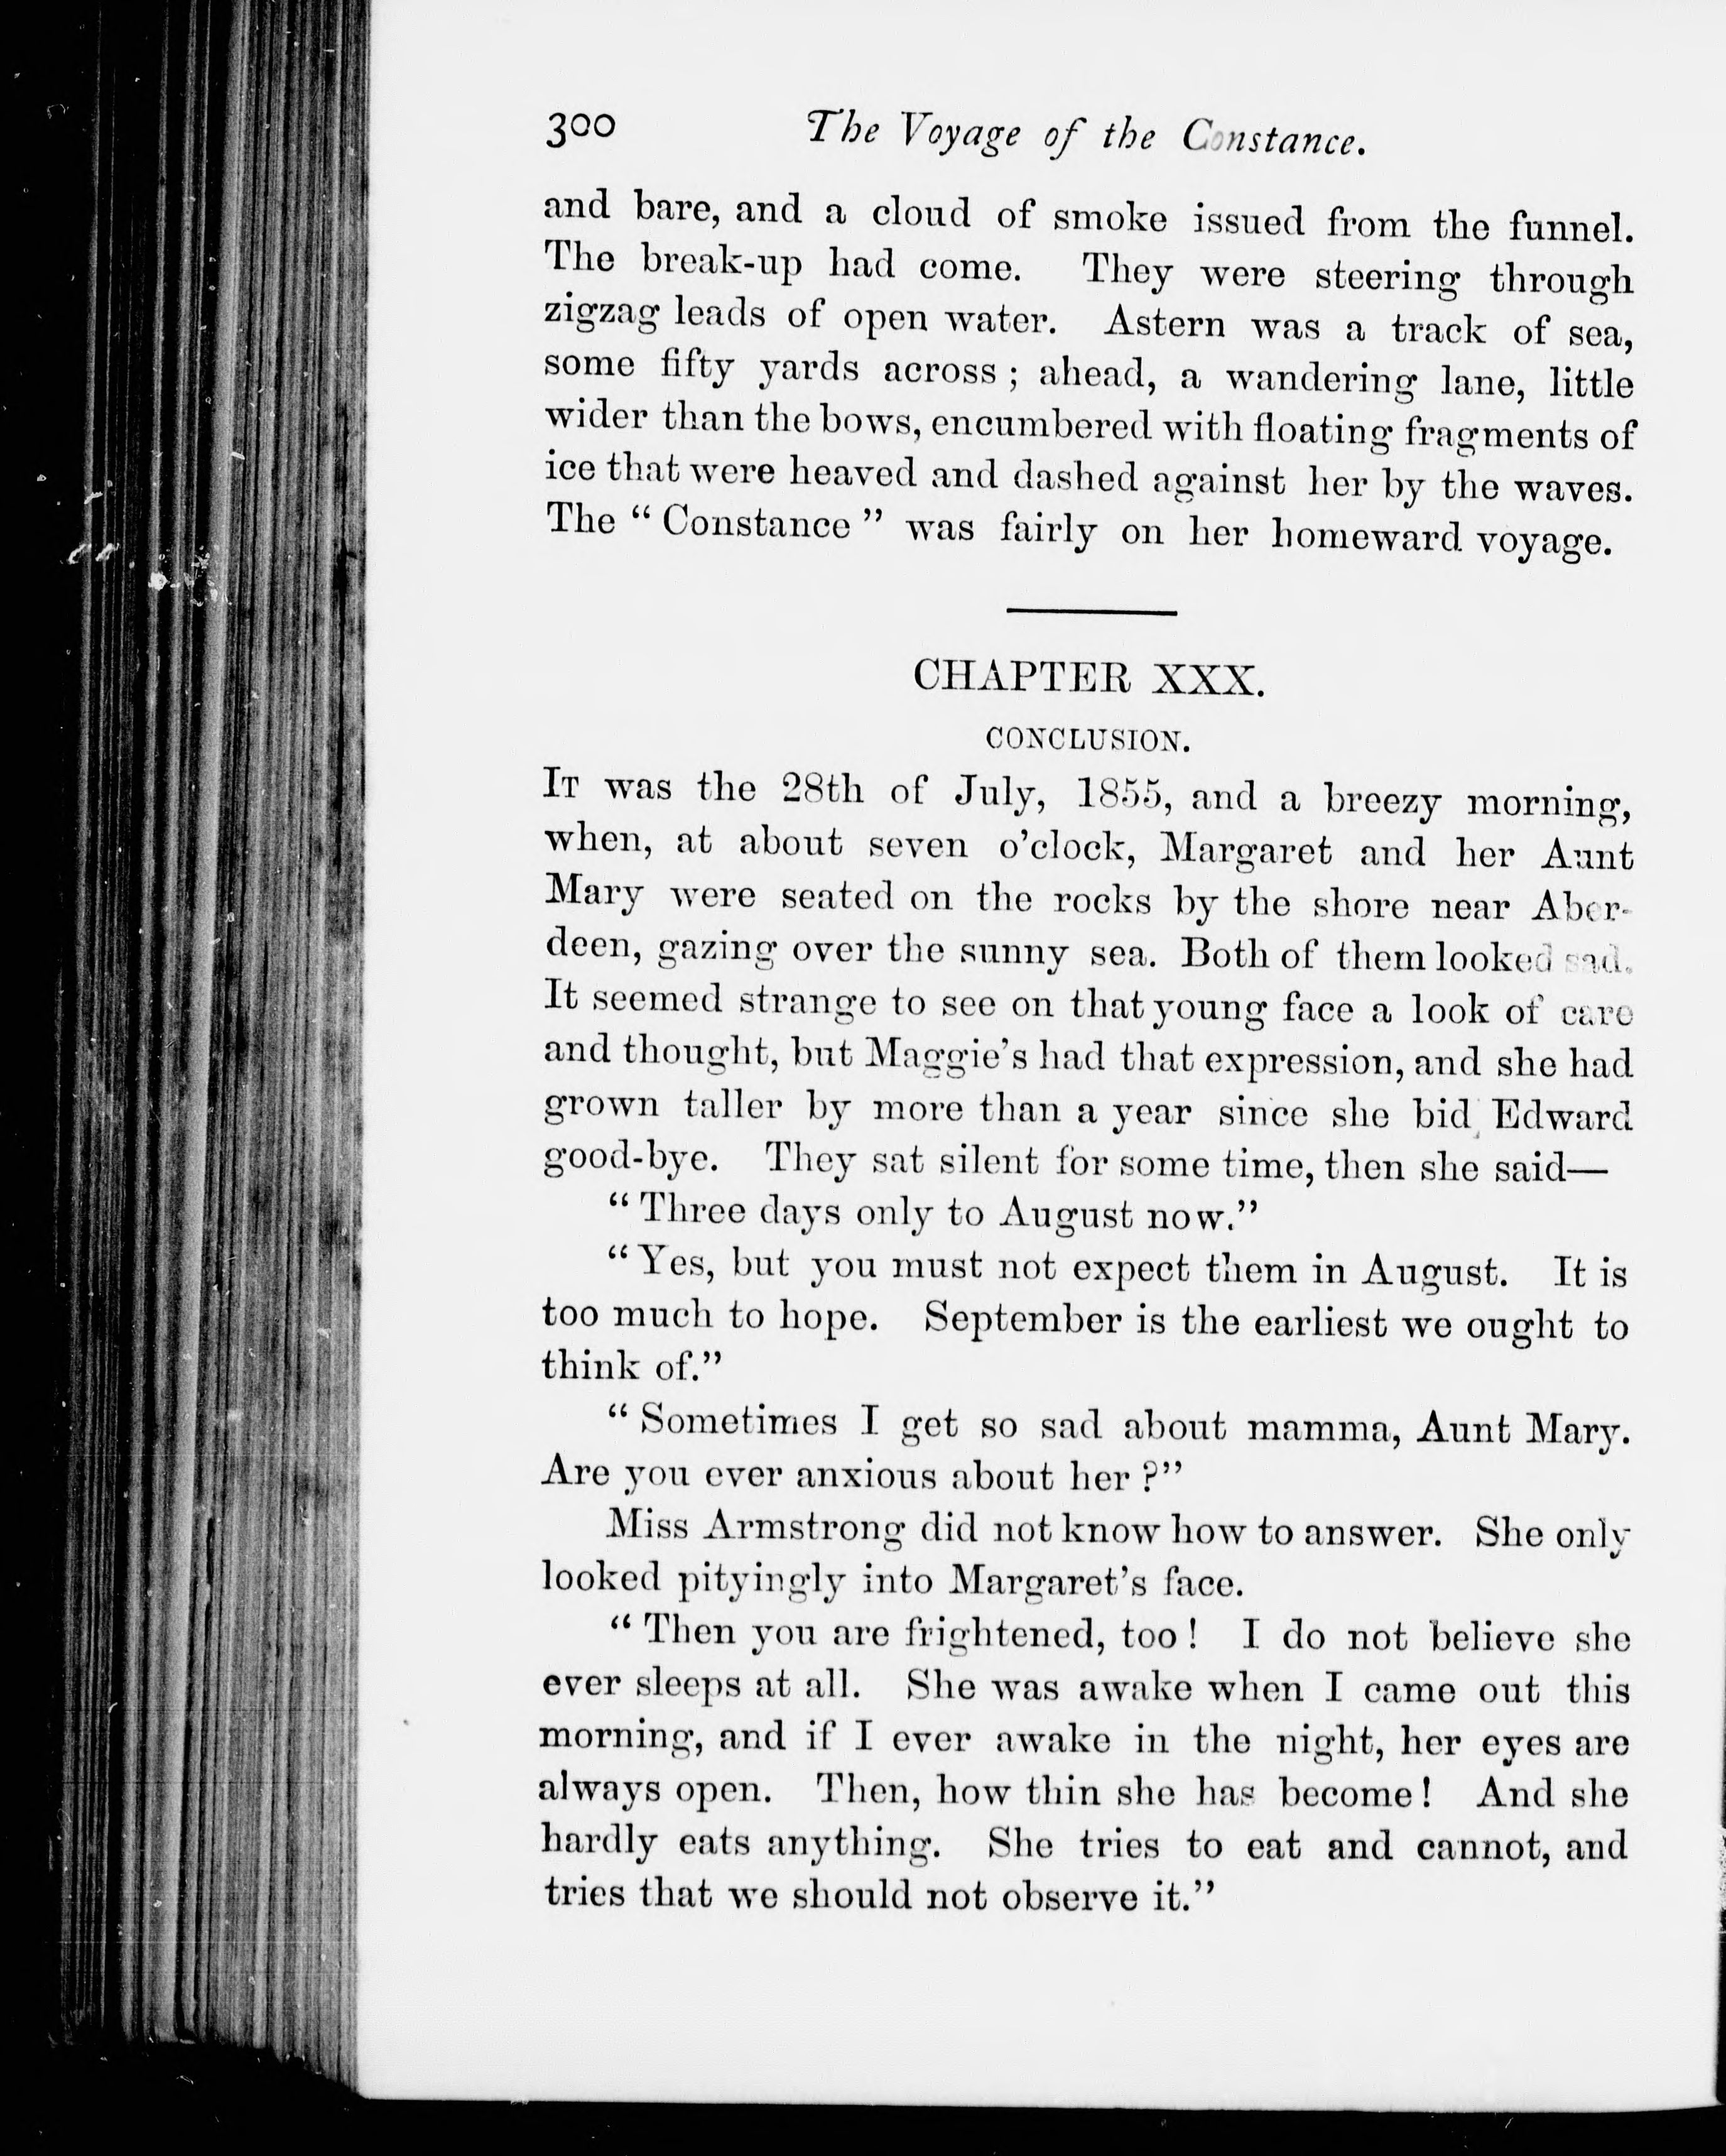 300 The Voyage of the Constance.
and bare, and a cloud of smoke issued from the funnel.
The break-up had come. They were steering through
zigzag leads of open water. Astern was a track of sea,
some fifty yards across ; ahead, a wandering lane, little
wider than the bows, encumbered with floating fragments of
ice that were heaved and dashed against her by the waves.
The “ Constance ” was fairly on her homeward voyage.
CHAPTER XXX.
CONCLUSION.
IT was the 28th of July, 1855, and a breezy morning,
when, at about seven o’clock, Margaret and her Aunt
Mary were seated on the rocks by the shore near Aber-
deen, gazing over the sunny sea. Both of them looked sad.
It seemed strange to see on that young face a look of care
and thought, but Maggie’s had that expression, and she had
grown taller by more than a year since she bid Edward
good-bye. They sat silent for some time, then she said—
“ Three days only to August now.”
“ Yes, but you must not expect them in August. It is
too much to hope. September is the earliest we ought to
think of.”
“ Sometimes I get so sad about mamma, Aunt Mary.
Are you ever anxious about her ?”
Miss Armstrong did not know how to answer. She only
looked pityingly into Margaret’s face.
“ Then you are frightened, too ! I do not believe she
ever sleeps at all. She was awake when I came out this
morning, and if I ever awake in the night, her eyes are
always open. Then, how thin she has become ! And she
hardly eats anything. She tries to eat and cannot, and
tries that we should not observe it.”